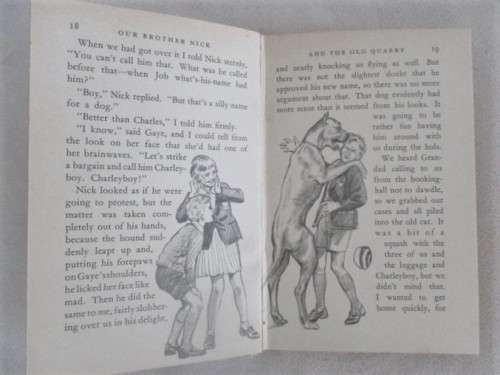 18
OUR BROTHER NICK
When we had got over it I told Nick sternly,
"You can't call him that. What was he called
before that—when Job what's-his-name had
him?"
"Boy," Nick replied. "But that's a silly name
for a dog."
"Better than Charles," I told him firmly.
"I know," said Gaye, and I could tell from
the look on her face that she'd had one of
her brainwaves. "Let's strike
a bargain and call him Charley-
boy. Charleyboy!"
Nick looked as if he were
going to protest, but the
matter was taken com-
pletely out of his hands,
because the hound sud-
denly leapt up and,
putting his forepaws
on Gaye's shoulders,
he licked her face like
mad. Then he did the
same to me, fairly slobber-
ing over us in his delight,
AND THE OLD QUARRY
19
and nearly knocking us flying as well. But
there was not the slightest doubt that he
approved his new name, so there was no more
argument about that. That dog evidently had
more sense than it seemed from his looks. It
was going to be
rather fun having
him around with
us during the hols.
We heard Gran-
dad calling to us
from the booking-
hall not to dawdle,
so we grabbed our
cases and all piled
into the old car. It
was a bit of a
squash with the
three of us and
the luggage and
Charleyboy, but we
didn't mind that.
I wanted to get
home quickly, for